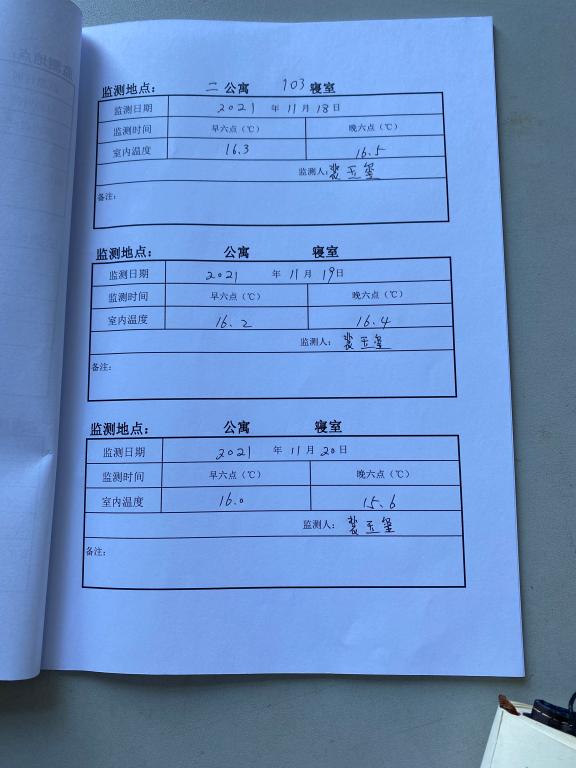 监测地点： 二 公寓 103 寝室
监测日期 2021 年 11 月 18 日
监测时间 早六点（℃） 晚六点（℃）
室内温度 16.3 16.5
监测人：裴玉玺
备注：
监测地点： 公寓 寝室
监测日期 2021 年 11 月 19 日
监测时间 早六点（℃） 晚六点（℃）
室内温度 16.2 16.4
监测人：裴玉玺
备注：
监测地点： 公寓 寝室
监测日期 2021 年 11 月 20 日
监测时间 早六点（℃） 晚六点（℃）
室内温度 16.0 15.6
监测人：裴玉玺
备注：